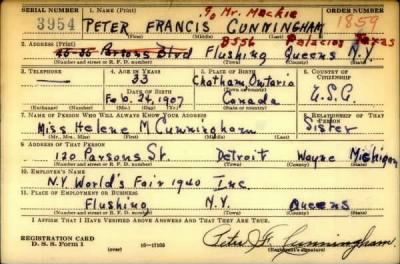 SERIAL NUMBER 1. NAME (Print) % Mr. Mackie ORDER NUMBER
3954 PETER FRANCIS CUNNINGHAM 1859
(First) (Middle) (Last)
2. ADDRESS (Print) 8556 Palacios Texas
45-35 Parsons Blvd Flushing Queens N.Y.
(Number and street or R. F. D. number) (Town) (County) (State)
3. TELEPHONE 4. AGE IN YEARS 5. PLACE OF BIRTH 6. COUNTRY OF CITIZENSHIP
33 Chatham Ontario
DATE OF BIRTH (Town or county)
Feb. 24, 1907 Canada U.S.A.
(Exchange) (Number) (Mo.) (Day) (Yr.) (State or country)
7. NAME OF PERSON WHO WILL ALWAYS KNOW YOUR ADDRESS RELATIONSHIP OF THAT PERSON
Miss Helene M Cunningham Sister
(Mr., Mrs., Miss) (First) (Middle) (Last)
8. ADDRESS OF THAT PERSON
120 Parsons St. Detroit Wayne Michigan
(Number and street or R. F. D. number) (Town) (County) (State)
10. EMPLOYER'S NAME
N.Y. World's Fair 1940 Inc
11. PLACE OF EMPLOYMENT OR BUSINESS
Flushing N.Y. Queens
(Number and street or R. F. D. number) (Town) (County) (State)
I AFFIRM THAT I HAVE VERIFIED ABOVE ANSWERS AND THAT THEY ARE TRUE.
REGISTRATION CARD
D. S. S. Form 1 (over) 16-17105 Peter F. Cunningham
(Registrant's signature)